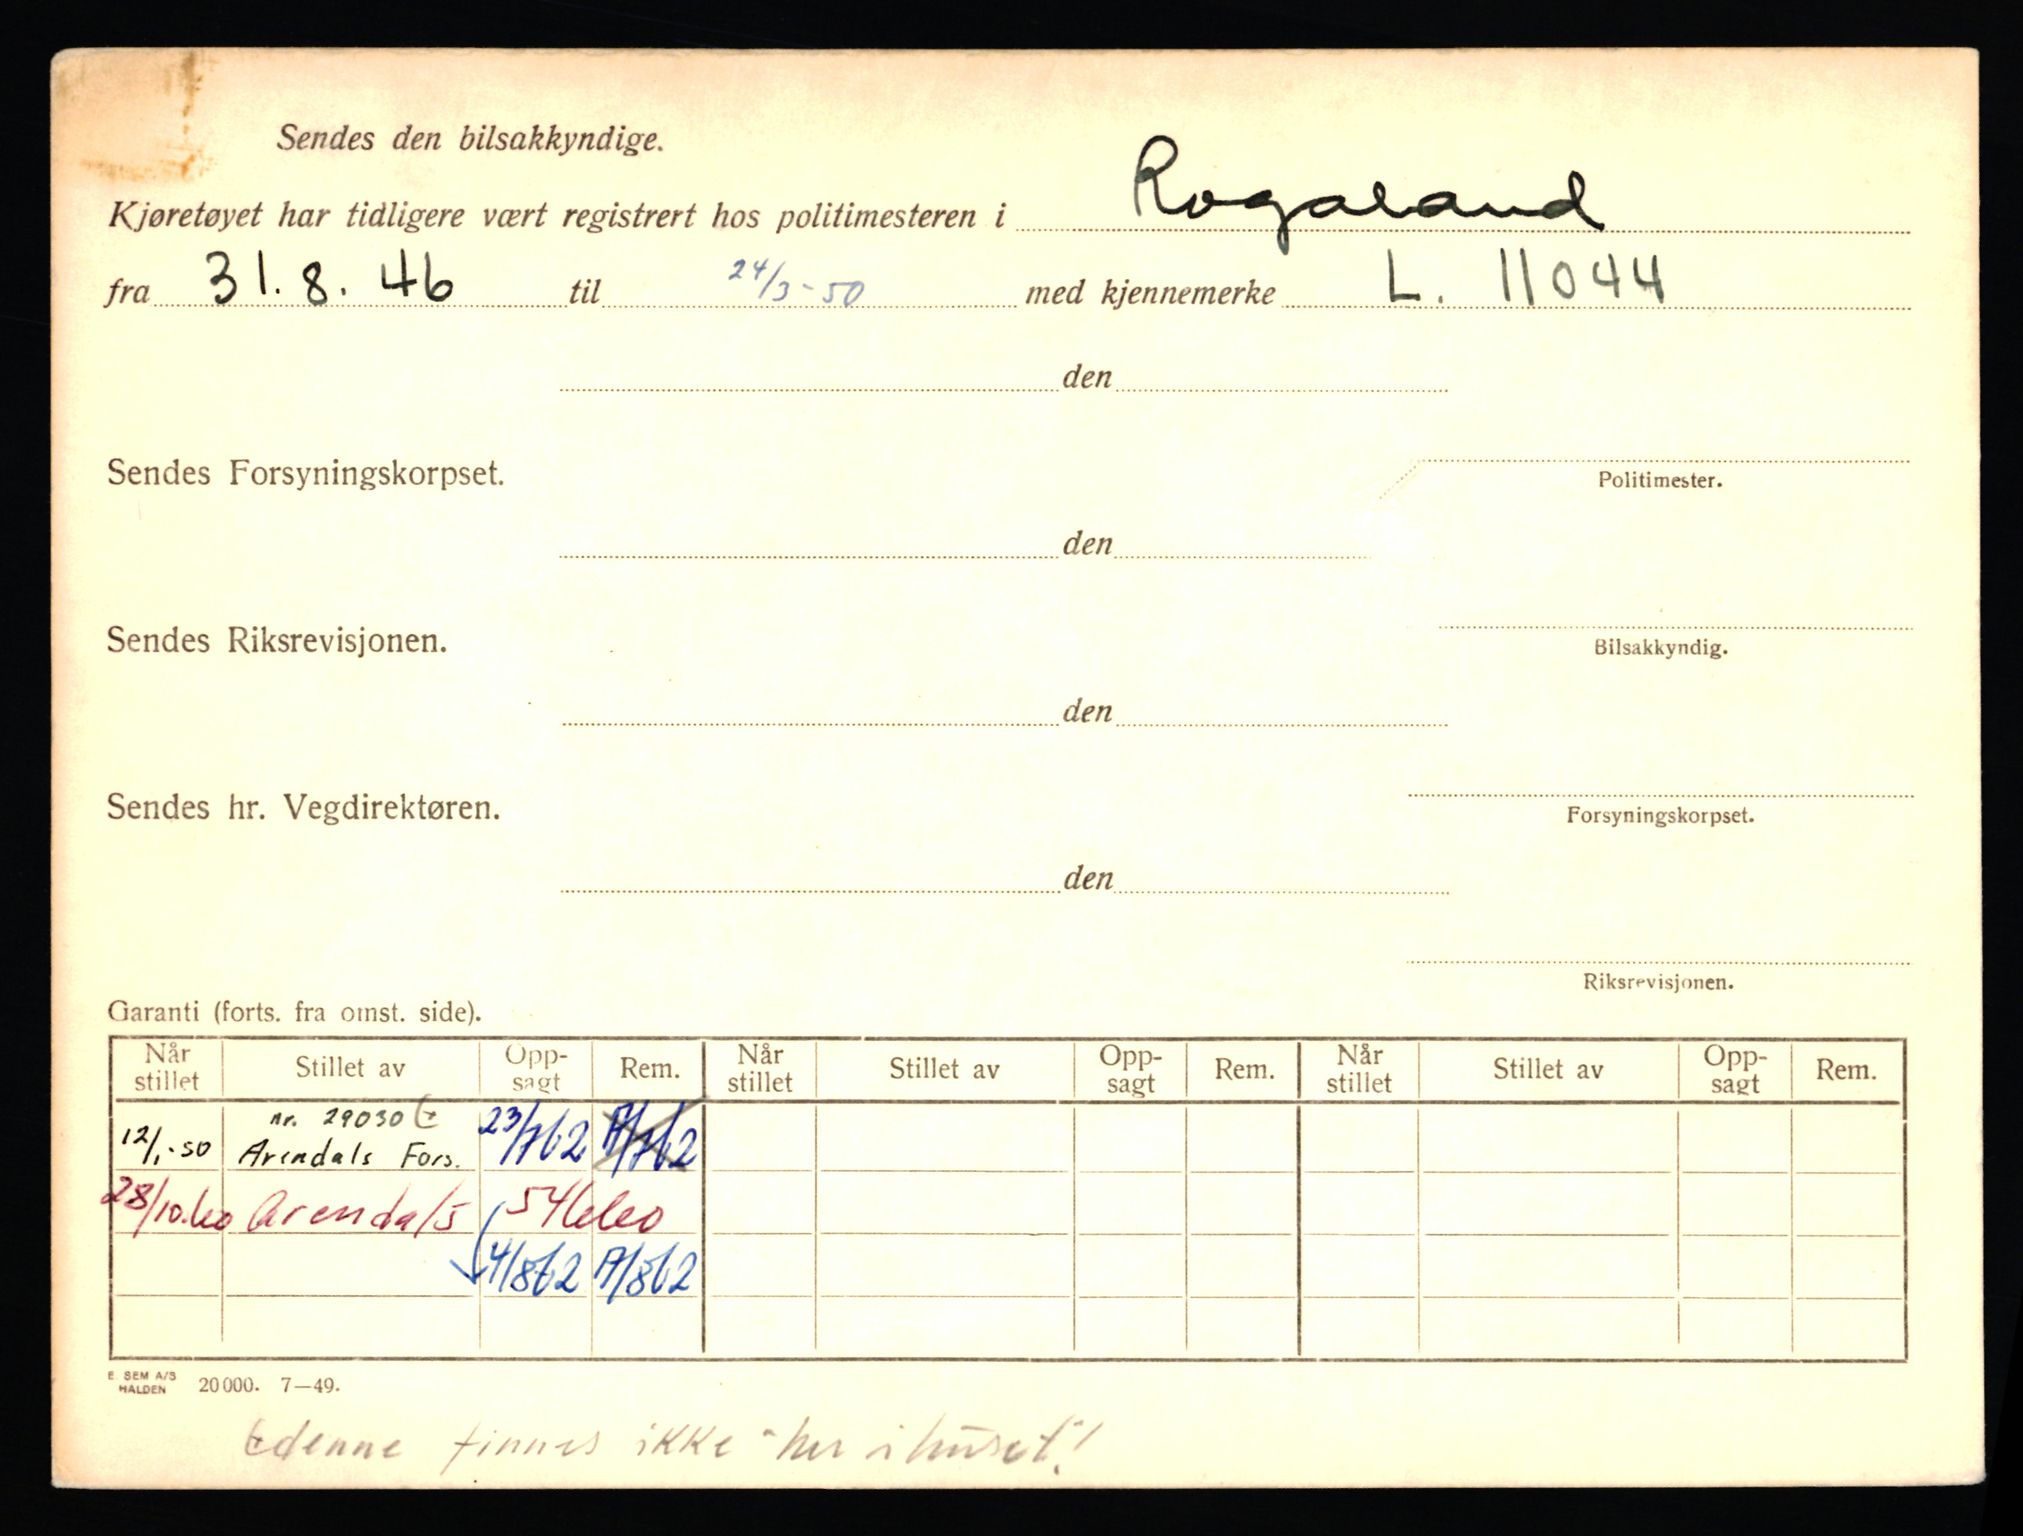 Sendes den bilsakkyndige.
Kjøretøyet har tidligere vært registrert hos politimesteren i Rogaland
fra 31.8.46 til 24/3-50 med kjennemerke L. 11044
den
Sendes Forsyningskorpset.
Politimester.
den
Sendes Riksrevisjonen.
Bilsakkyndig.
den
Sendes hr. Vegdirektøren.
Forsyningskorpset.
den
Riksrevisjonen.
Garanti (forts. fra omst. side).
Når stillet Stillet av Opp-sagt Rem. Når stillet Stillet av Opp-sagt Rem. Når stillet Stillet av Opp-sagt Rem.
nr. 29030
12/1-50 Arendals Fors. 23/7 62
28/10.60 Arendals 54660
4/8 62 /8 62
E. SEM A/S HALDEN 20000. 7—49.
denne finnes ikke "her i huset"!